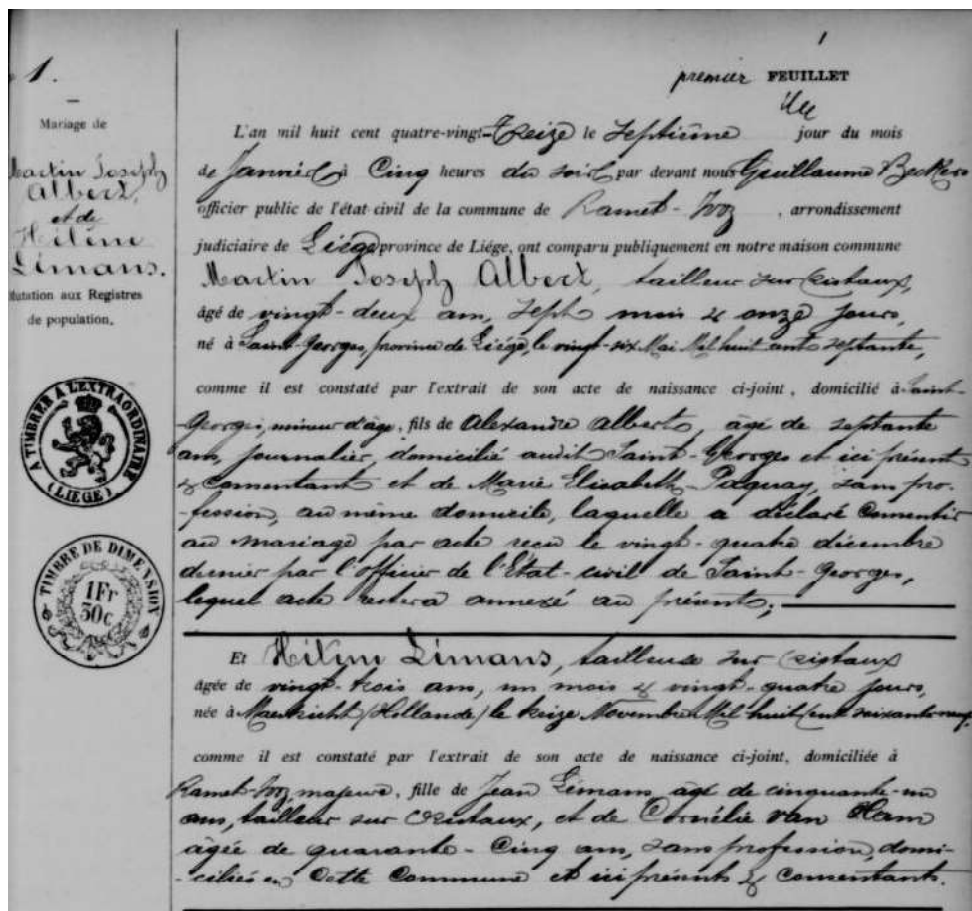 1
1.
premier FEUILLET
Mariage de
Martin Joseph
Albert,
et de
Hélène
Limans.
Mutation aux Registres
de population.
A TIMBRER A L'EXTRAORDINAIRE
(LIÉGE)
TIMBRE DE DIMENSION
1Fr
30c
L'an mil huit cent quatre-vingt-Treize le Septième jour du mois
de Janvier à Cinq heures du soir par devant nous Guillaume Beckers
officier public de l'état-civil de la commune de Ramet-Ivoz, arrondissement
judiciaire de Liége province de Liége, ont comparu publiquement en notre maison commune
Martin Joseph Albert, tailleur sur Cristaux,
âgé de vingt-deux ans, Sept mois & onze jours,
né à Saint-Georges, province de Liége, le vingt-six Mai Mil huit cents septante,
comme il est constaté par l'extrait de son acte de naissance ci-joint, domicilié à Saint-
Georges, mineur d'âge, fils de Alexandre Albert, âgé de septante
ans, journalier, domicilié audit Saint-Georges et ici présent
& Consentant et de Marie Elisabeth Paquay, sans pro-
-fession, au même domicile, laquelle a déclaré Consentir
au mariage par acte reçu le vingt-quatre décembre
dernier par l'officier de l'Etat-civil de Saint-Georges,
lequel acte restera annexé au présent;
Et Hélène Limans, tailleuse sur Cristaux
âgée de vingt-trois ans, un mois & vingt-quatre jours,
née à Maestricht (Hollande) le treize Novembre Mil huit Cent soixante neuf,
comme il est constaté par l'extrait de son acte de naissance ci-joint, domiciliée à
Ramet-Ivoz majeure, fille de Jean Limans, âgé de cinquante-un
ans, tailleur sur Cristaux, et de Cornélie van Ham
âgée de quarante-Cinq ans, sans profession, domi-
-ciliés en Cette Commune et ici présents & Consentants.